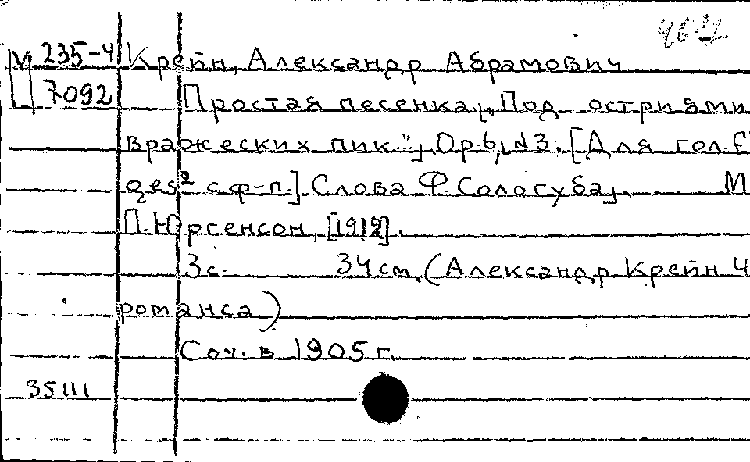 М 235-4 Крейн, Александр Абрамович
7092 Простая песенка „Под остриями
вражеских пик", Op.6, №3. [Для гол. c¹
ges² с ф-п.] Слова Ф. Сологуба. М
П. Юргенсон, [1912].
3с. 34см. (Александр Крейн 4
романса)
Соч. в 1905 г.
35111